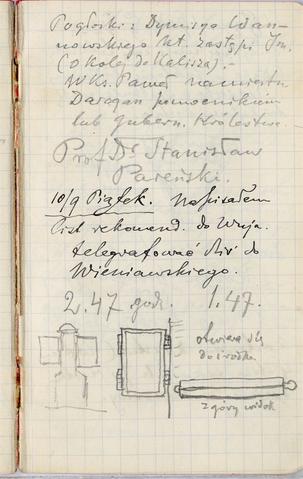 Pogłoski: Dymisya Wan-
nowskiego kt. zastąpi Jn.
(o Kolej do Kalisza). -
W Ks. Paweł namiestn.
Daragan pomocnikiem
lub gubern. Królestwa. -
Prof Dr Stanisław
Pareński.
10/9 Piątek. Napisałem
list rekomend. do Wuja.
telegrafować dziś do
Wieniawskiego.
2.47 godz. 1.47.
otwiera się
do środka
z góry widok